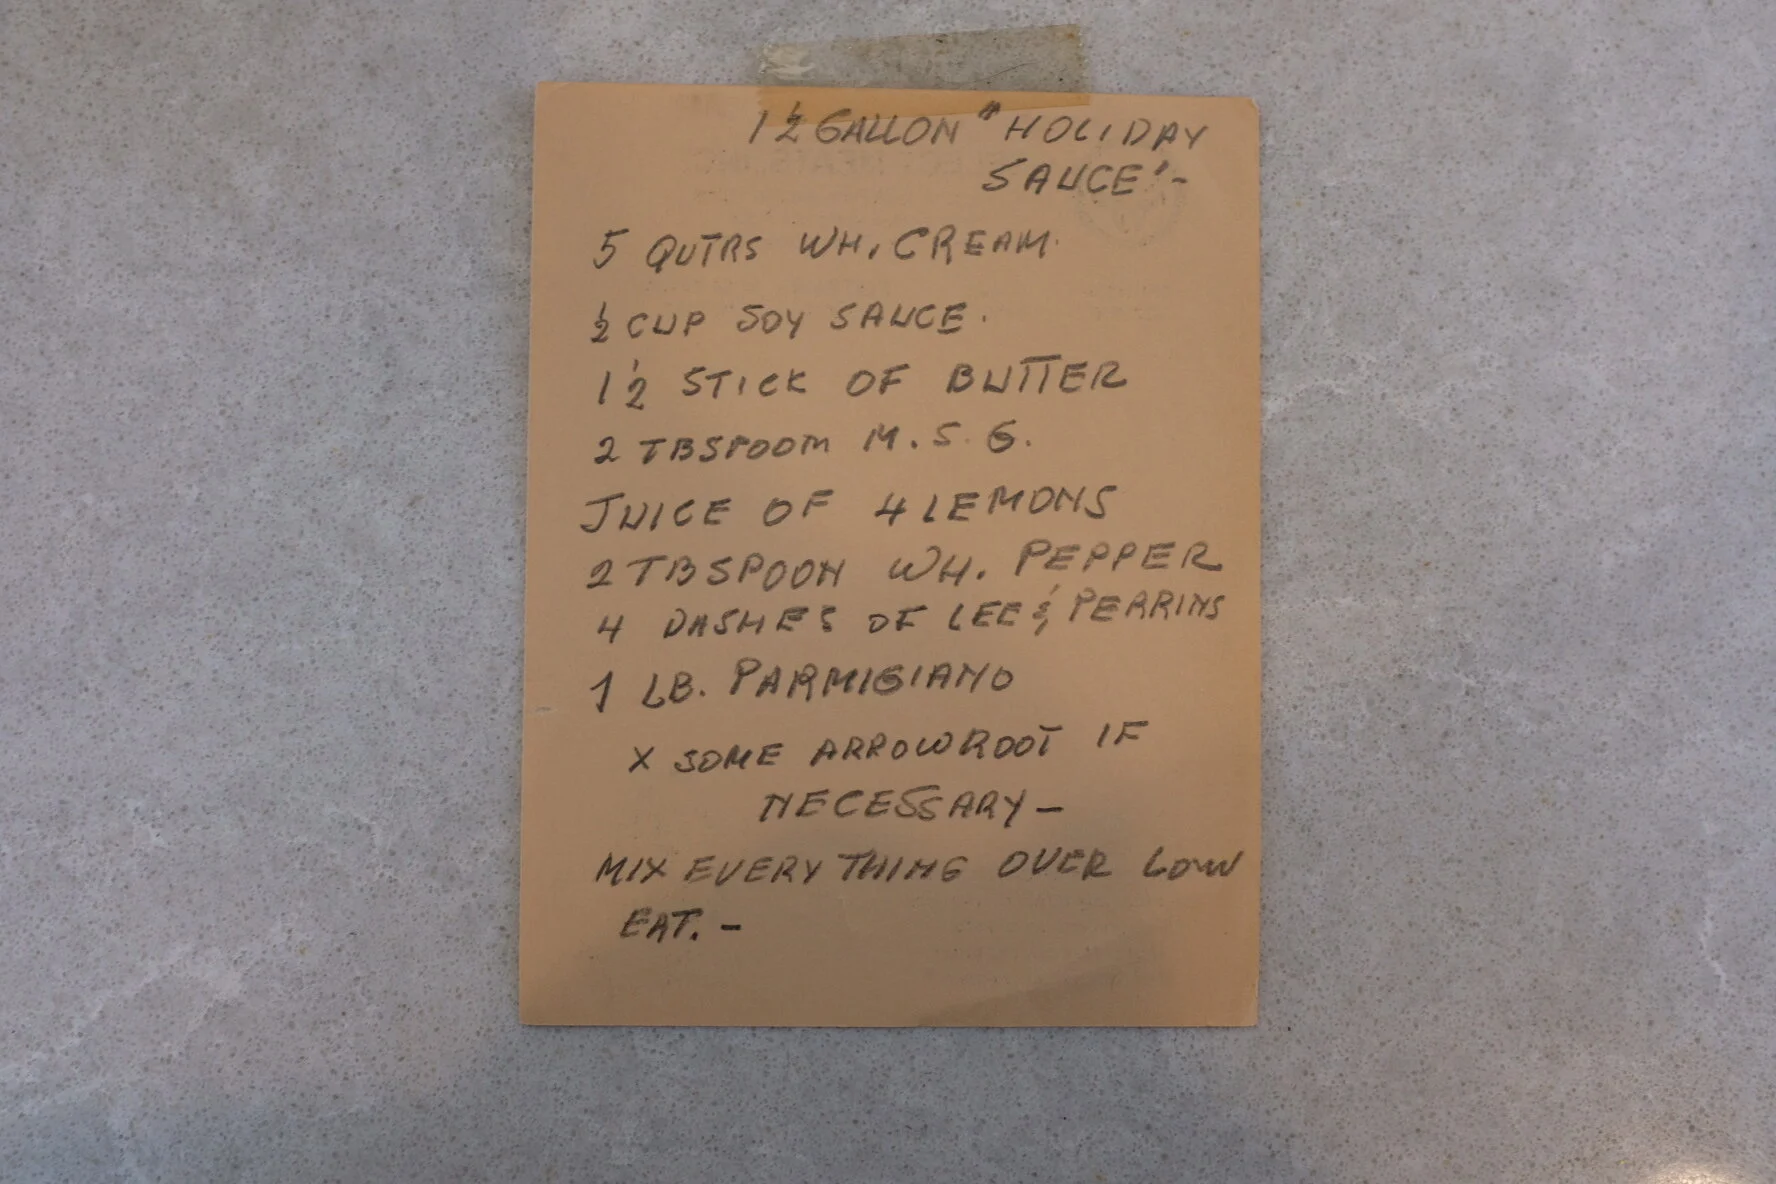 1 ½ GALLON "HOLIDAY
SAUCE'-
5 QUTRS WH. CREAM.
½ CUP SOY SAUCE.
1 ½ STICK OF BUTTER
2 TBSPOOM M.S.G.
JUICE OF 4 LEMONS
2 TBSPOON WH. PEPPER
4 DASHES OF LEE & PERRINS
1 LB. PARMIGIANO
X SOME ARROWROOT IF
NECESSARY -
MIX EVERYTHING OVER LOW
EAT. -